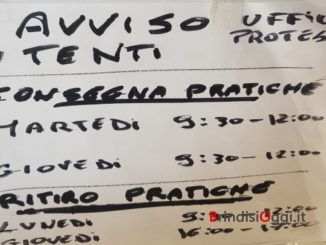 AVVISO UFFIC
UTENTI PROTES
CONSEGNA PRATICHE
MARTEDI 9:30-12:00
GIOVEDI 9:30-12:00
RITIRO PRATICHE
LUNEDI 9:30-12:00
GIOVEDI 16:00-17:00
BrindisiOggi.it